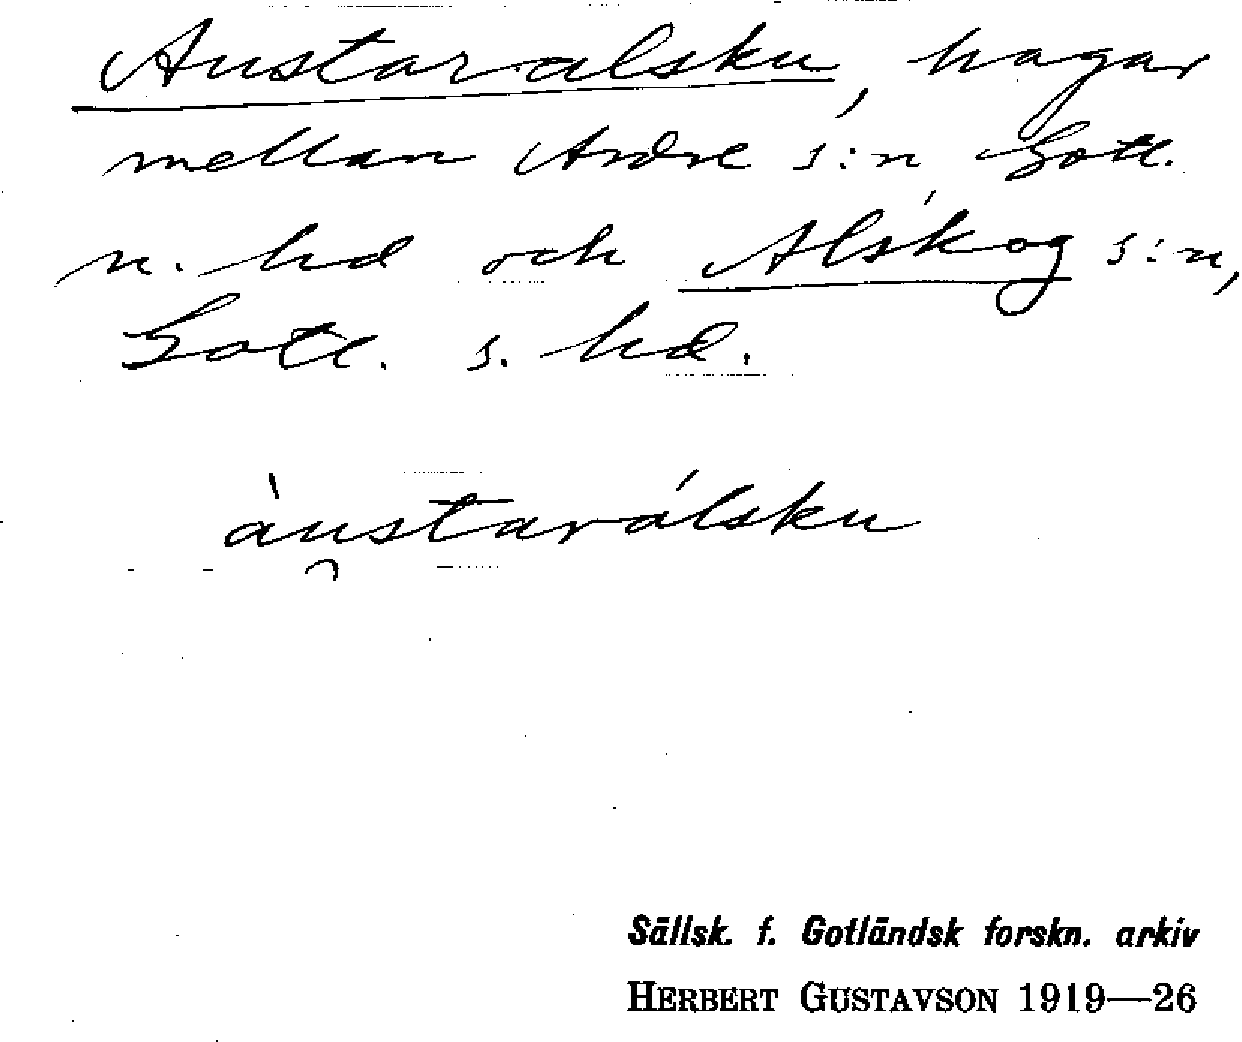 Austaralsku, hagar
mellan Ardre s:n Gotl.
n. hd och Alskog s:n,
Gotl. s. hd.
àu̯starálsku
Sällsk. f. Gotländsk forskn. arkiv
HERBERT GUSTAVSON 1919—26